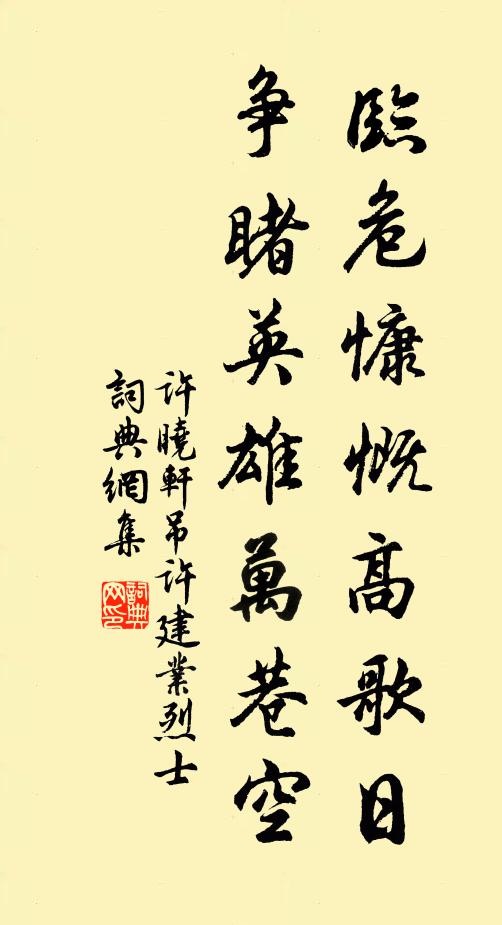 臨危慷慨高歌日
争睹英雄萬巷空
許曉軒吊許建業烈士
詞典網集
詞典
网印